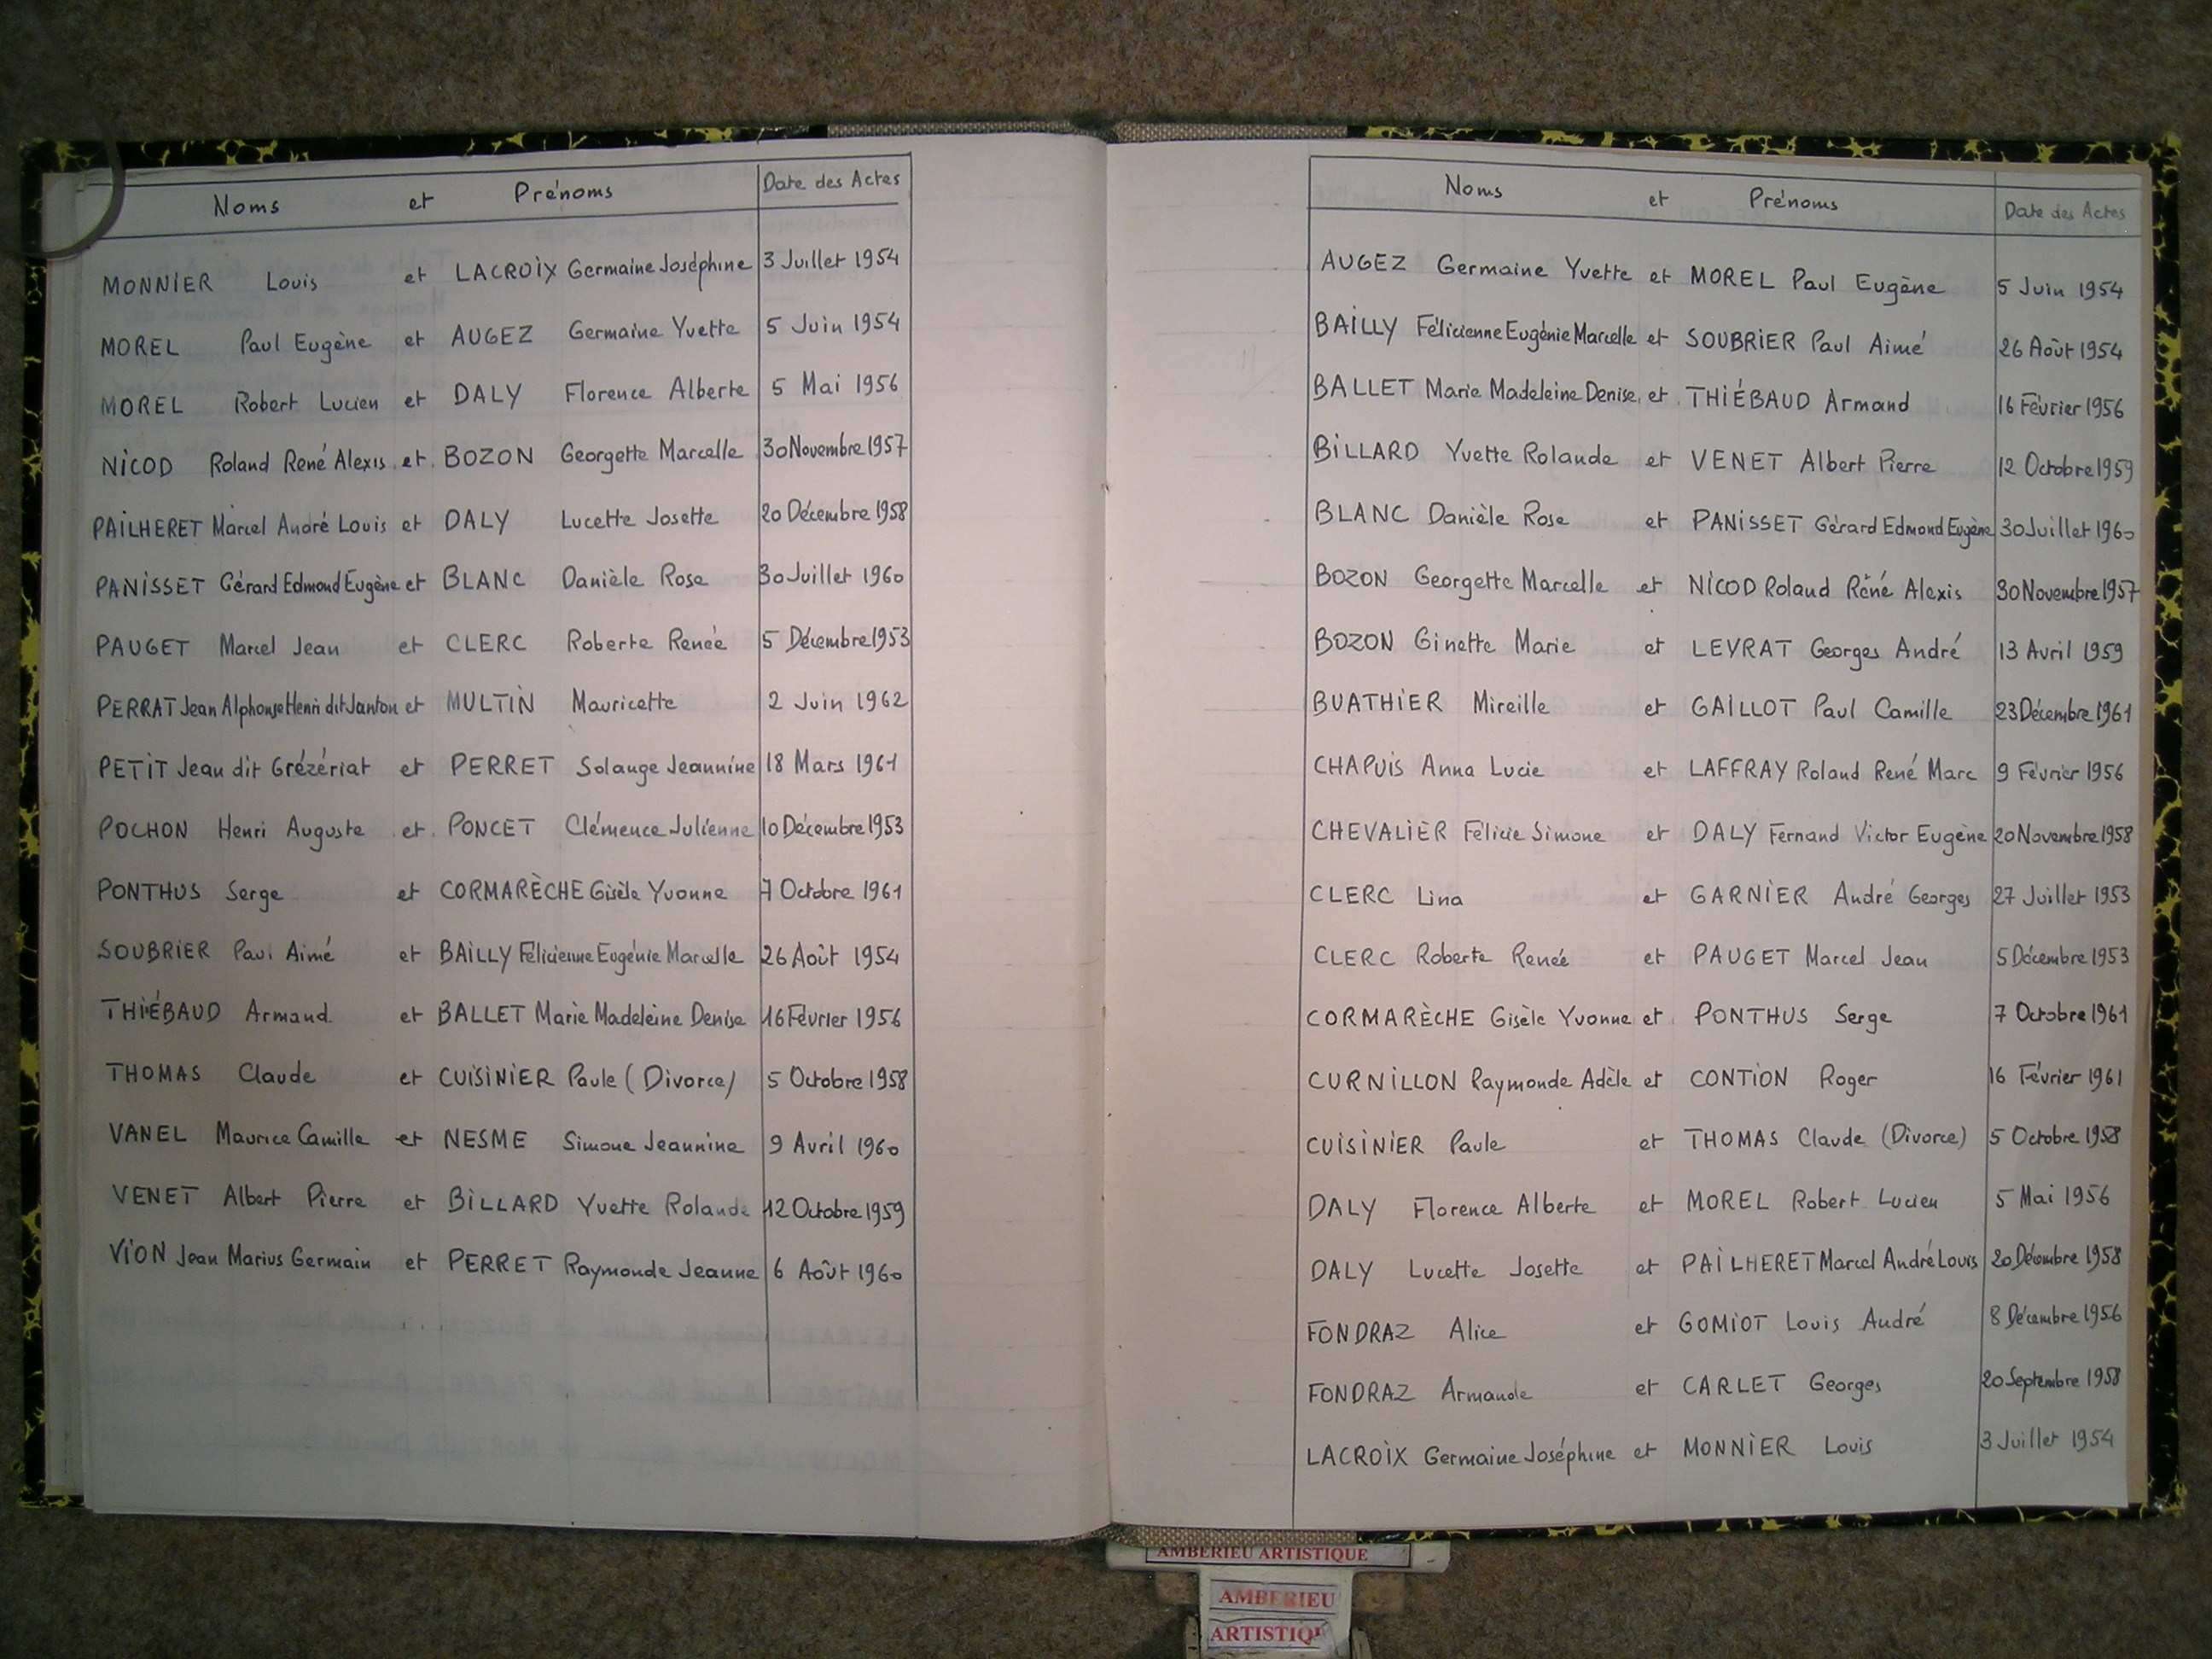 Noms et Prénoms Date des Actes
MONNIER Louis et LACROIX Germaine Joséphine 3 Juillet 1954
MOREL Paul Eugène et AUGEZ Germaine Yvette 5 Juin 1954
MOREL Robert Lucien et DALY Florence Alberte 5 Mai 1956
NICOD Roland René Alexis et BOZON Georgette Marcelle 30 Novembre 1957
PAILHERET Marcel André Louis et DALY Lucette Josette 20 Décembre 1958
PANISSET Gérard Edmond Eugène et BLANC Danièle Rose 30 Juillet 1960
PAUGET Marcel Jean et CLERC Roberte Renée 5 Décembre 1953
PERRAT Jean Alphonse Henri dit Janton et MULTIN Mauricette 2 Juin 1962
PETIT Jean dit Grézériat et PERRET Solange Jeannine 18 Mars 1961
POCHON Henri Auguste et PONCET Clémence Julienne 10 Décembre 1953
PONTHUS Serge et CORMARÈCHE Gisèle Yvonne 7 Octobre 1961
SOUBRIER Paul Aimé et BAILLY Félicienne Eugénie Marcelle 26 Août 1954
THIÉBAUD Armand et BALLET Marie Madeleine Denise 16 Février 1956
THOMAS Claude et CUISINIER Paule (Divorce) 5 Octobre 1958
VANEL Maurice Camille et NESME Simone Jeannine 9 Avril 1960
VENET Albert Pierre et BILLARD Yvette Rolande 12 Octobre 1959
VION Jean Marius Germain et PERRET Raymonde Jeanne 6 Août 1960
Noms et Prénoms Date des Actes
AUGEZ Germaine Yvette et MOREL Paul Eugène 5 Juin 1954
BAILLY Félicienne Eugénie Marcelle et SOUBRIER Paul Aimé 26 Août 1954
BALLET Marie Madeleine Denise et THIÉBAUD Armand 16 Février 1956
BILLARD Yvette Rolande et VENET Albert Pierre 12 Octobre 1959
BLANC Danièle Rose et PANISSET Gérard Edmond Eugène 30 Juillet 1960
BOZON Georgette Marcelle et NICOD Roland René Alexis 30 Novembre 1957
BOZON Ginette Marie et LEVRAT Georges André 13 Avril 1959
BUATHIER Mireille et GAILLOT Paul Camille 23 Décembre 1961
CHAPUIS Anna Lucie et LAFFRAY Roland René Marc 9 Février 1956
CHEVALIER Félicie Simone et DALY Fernand Victor Eugène 20 Novembre 1958
CLERC Lina et GARNIER André Georges 27 Juillet 1953
CLERC Roberte Renée et PAUGET Marcel Jean 5 Décembre 1953
CORMARÈCHE Gisèle Yvonne et PONTHUS Serge 7 Octobre 1961
CURNILLON Raymonde Adèle et CONTION Roger 16 Février 1961
CUISINIER Paule et THOMAS Claude (Divorce) 5 Octobre 1958
DALY Florence Alberte et MOREL Robert Lucien 5 Mai 1956
DALY Lucette Josette et PAILHERET Marcel André Louis 20 Décembre 1958
FONDRAZ Alice et GOMIOT Louis André 8 Décembre 1956
FONDRAZ Armande et CARLET Georges 20 Septembre 1958
LACROIX Germaine Joséphine et MONNIER Louis 3 Juillet 1954
AMBERIEU ARTISTIQUE
AMBERIEU
ARTISTIQU